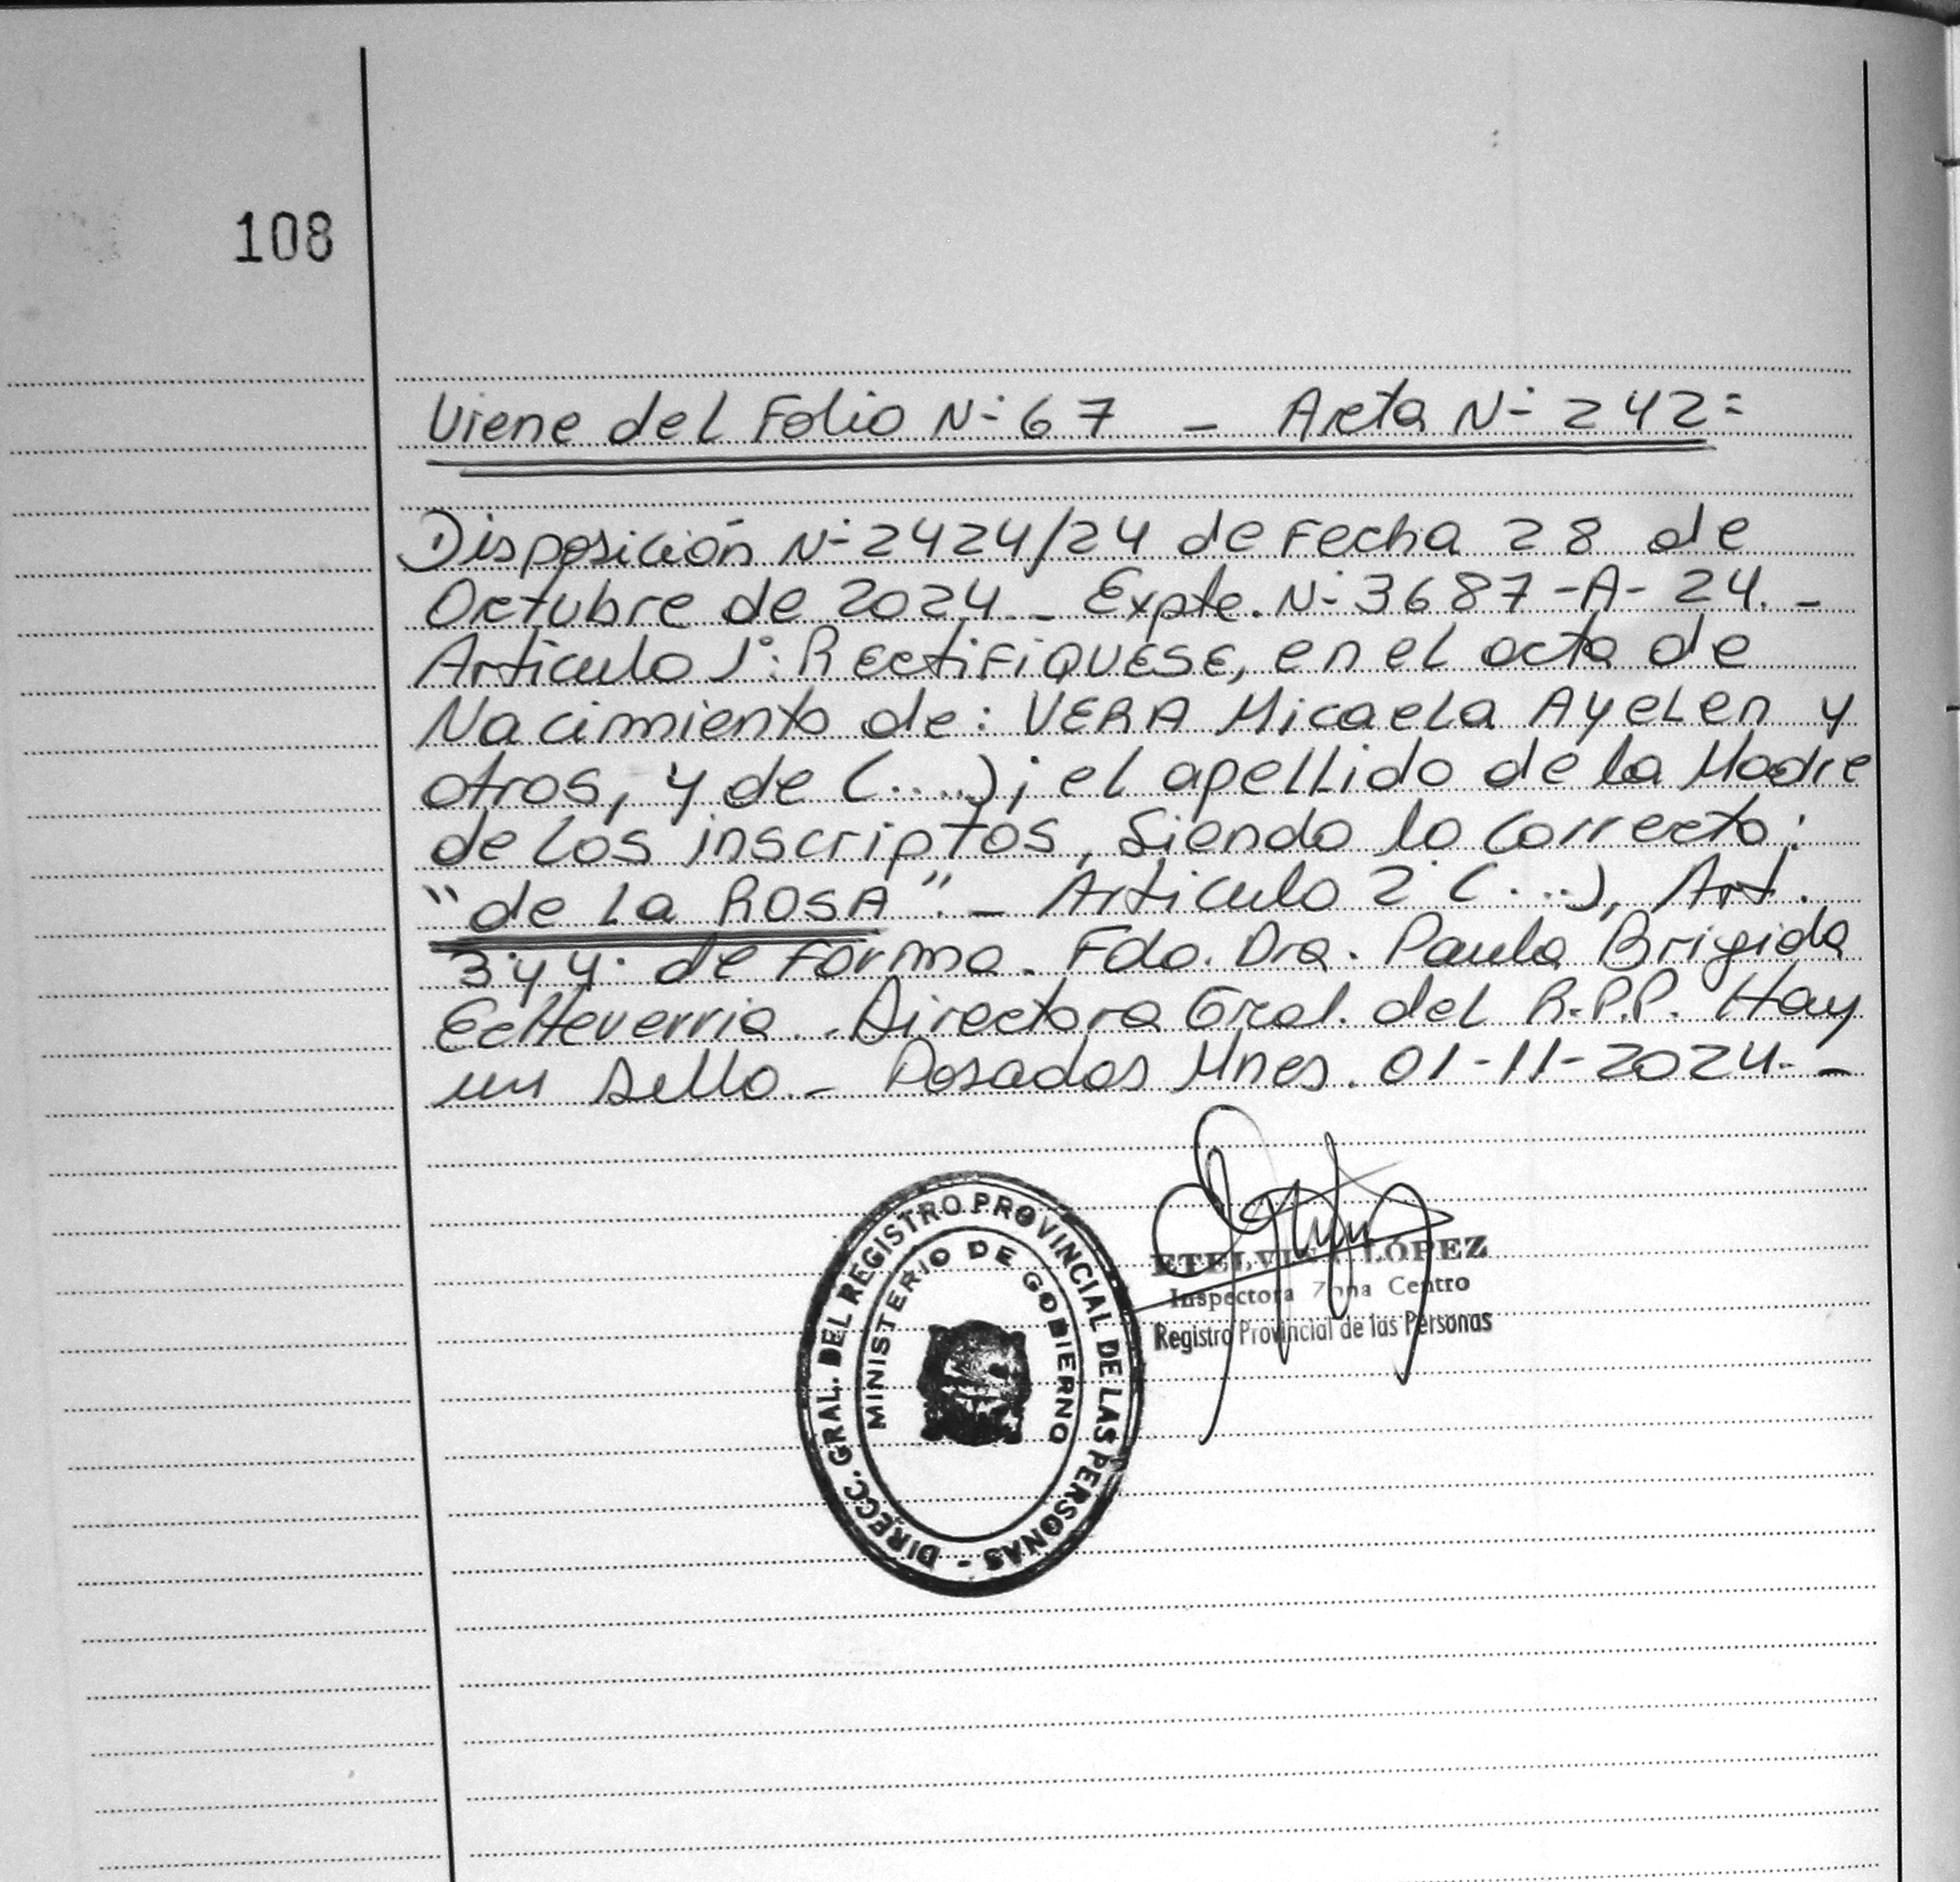 108
Viene del Folio Nº 67 - Acta Nº 242=
Disposición Nº 2424/24 de Fecha 28 de
Octubre de 2024.- Expte. Nº 3687-A-24.-
Articulo 1º: RectiFiQUESE, en el acta de
Nacimiento de: VERA Micaela AyeLen y
otros, y de (....); el apellido de la Madre
de Los inscriptos, Siendo lo Correcto:
"de La ROSA".- Articulo 2º (...), Art.
3º y 4º de Forma. Fdo. Dra. Paula Brigida
Echeverria.. Directora Gral. del R.P.P. Hay
un Sello.- Posadas Mnes. 01-11-2024.-
DIRECC. GRAL. DEL REGISTRO PROVINCIAL DE LAS PERSONAS -
MINISTERIO DE GOBIERNO
ETELVINA LÓPEZ
Inspectora Zona Centro
Registro Provincial de las Personas